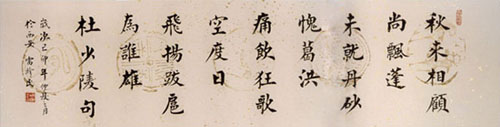 秋来相顧
尚飄蓬
未就丹砂
愧葛洪
痛飲狂歌
空度日
飛揚跋扈
為誰雄
杜少陵句
歲次己卯年仲夏月
於西安